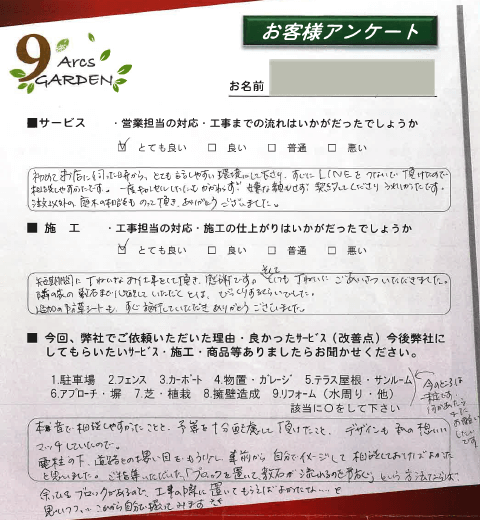 9 Arcs
GARDEN
お客様アンケート
お名前
■サービス ・営業担当の対応・工事までの流れはいかがだったでしょうか
☑ とても良い □ 良い □ 普通 □ 悪い
初めてお店に伺った時から、とても話しやすい環境にして下さり、すぐにLINEをつないで頂けたので
相談しやすかったです。一度キャンセルしたにもかかわらず
注文以外の庭木の相談ものって頂き、ありがとうございました。
■施 工 ・工事担当の対応・施工の仕上がりはいかがだったでしょうか
☑ とても良い □ 良い □ 普通 □ 悪い
短期間に丁ねいなお仕事をして頂き、感謝です。そしてとても丁ねいにごあいさついただきました。
隣の家の敷石まで心配していただいてとても、びっくりするくらいでした。
追加の防草シートも、すぐ施行していただきありがとうございました。
■ 今回、弊社でご依頼いただいた理由・良かったｻｰﾋﾞｽ（改善点）今後弊社に
してもらいたいｻｰﾋﾞｽ・施工・商品等ありましたらお聞かせください。
1.駐車場 2.フェンス 3.ｶｰﾎﾟｰﾄ 4.物置・ｶﾞﾚｰｼﾞ 5.テラス屋根・サンルーム
6.アプローチ・塀 7.芝・植栽 8.擁壁造成 9.ﾘﾌｫｰﾑ（水周り・他）
該当に〇をして下さい
今のところは
本音で相談しやすかったことと、予算を十分配慮して頂けたこと、デザインも私の想いに
マッチしていたので。
電柱の下、道路との境い目をもう少し、事前から自分でイメージして相談しておけばよかった
と思いました。ご指導いただいた、「ブロックを置いて、敷石が流れるのを防ぐ」という方法ならば、
余ったブロックがあるので、工事の際に置いてもらえばよかったな…と
思いつつ…これから自分で置いてみます